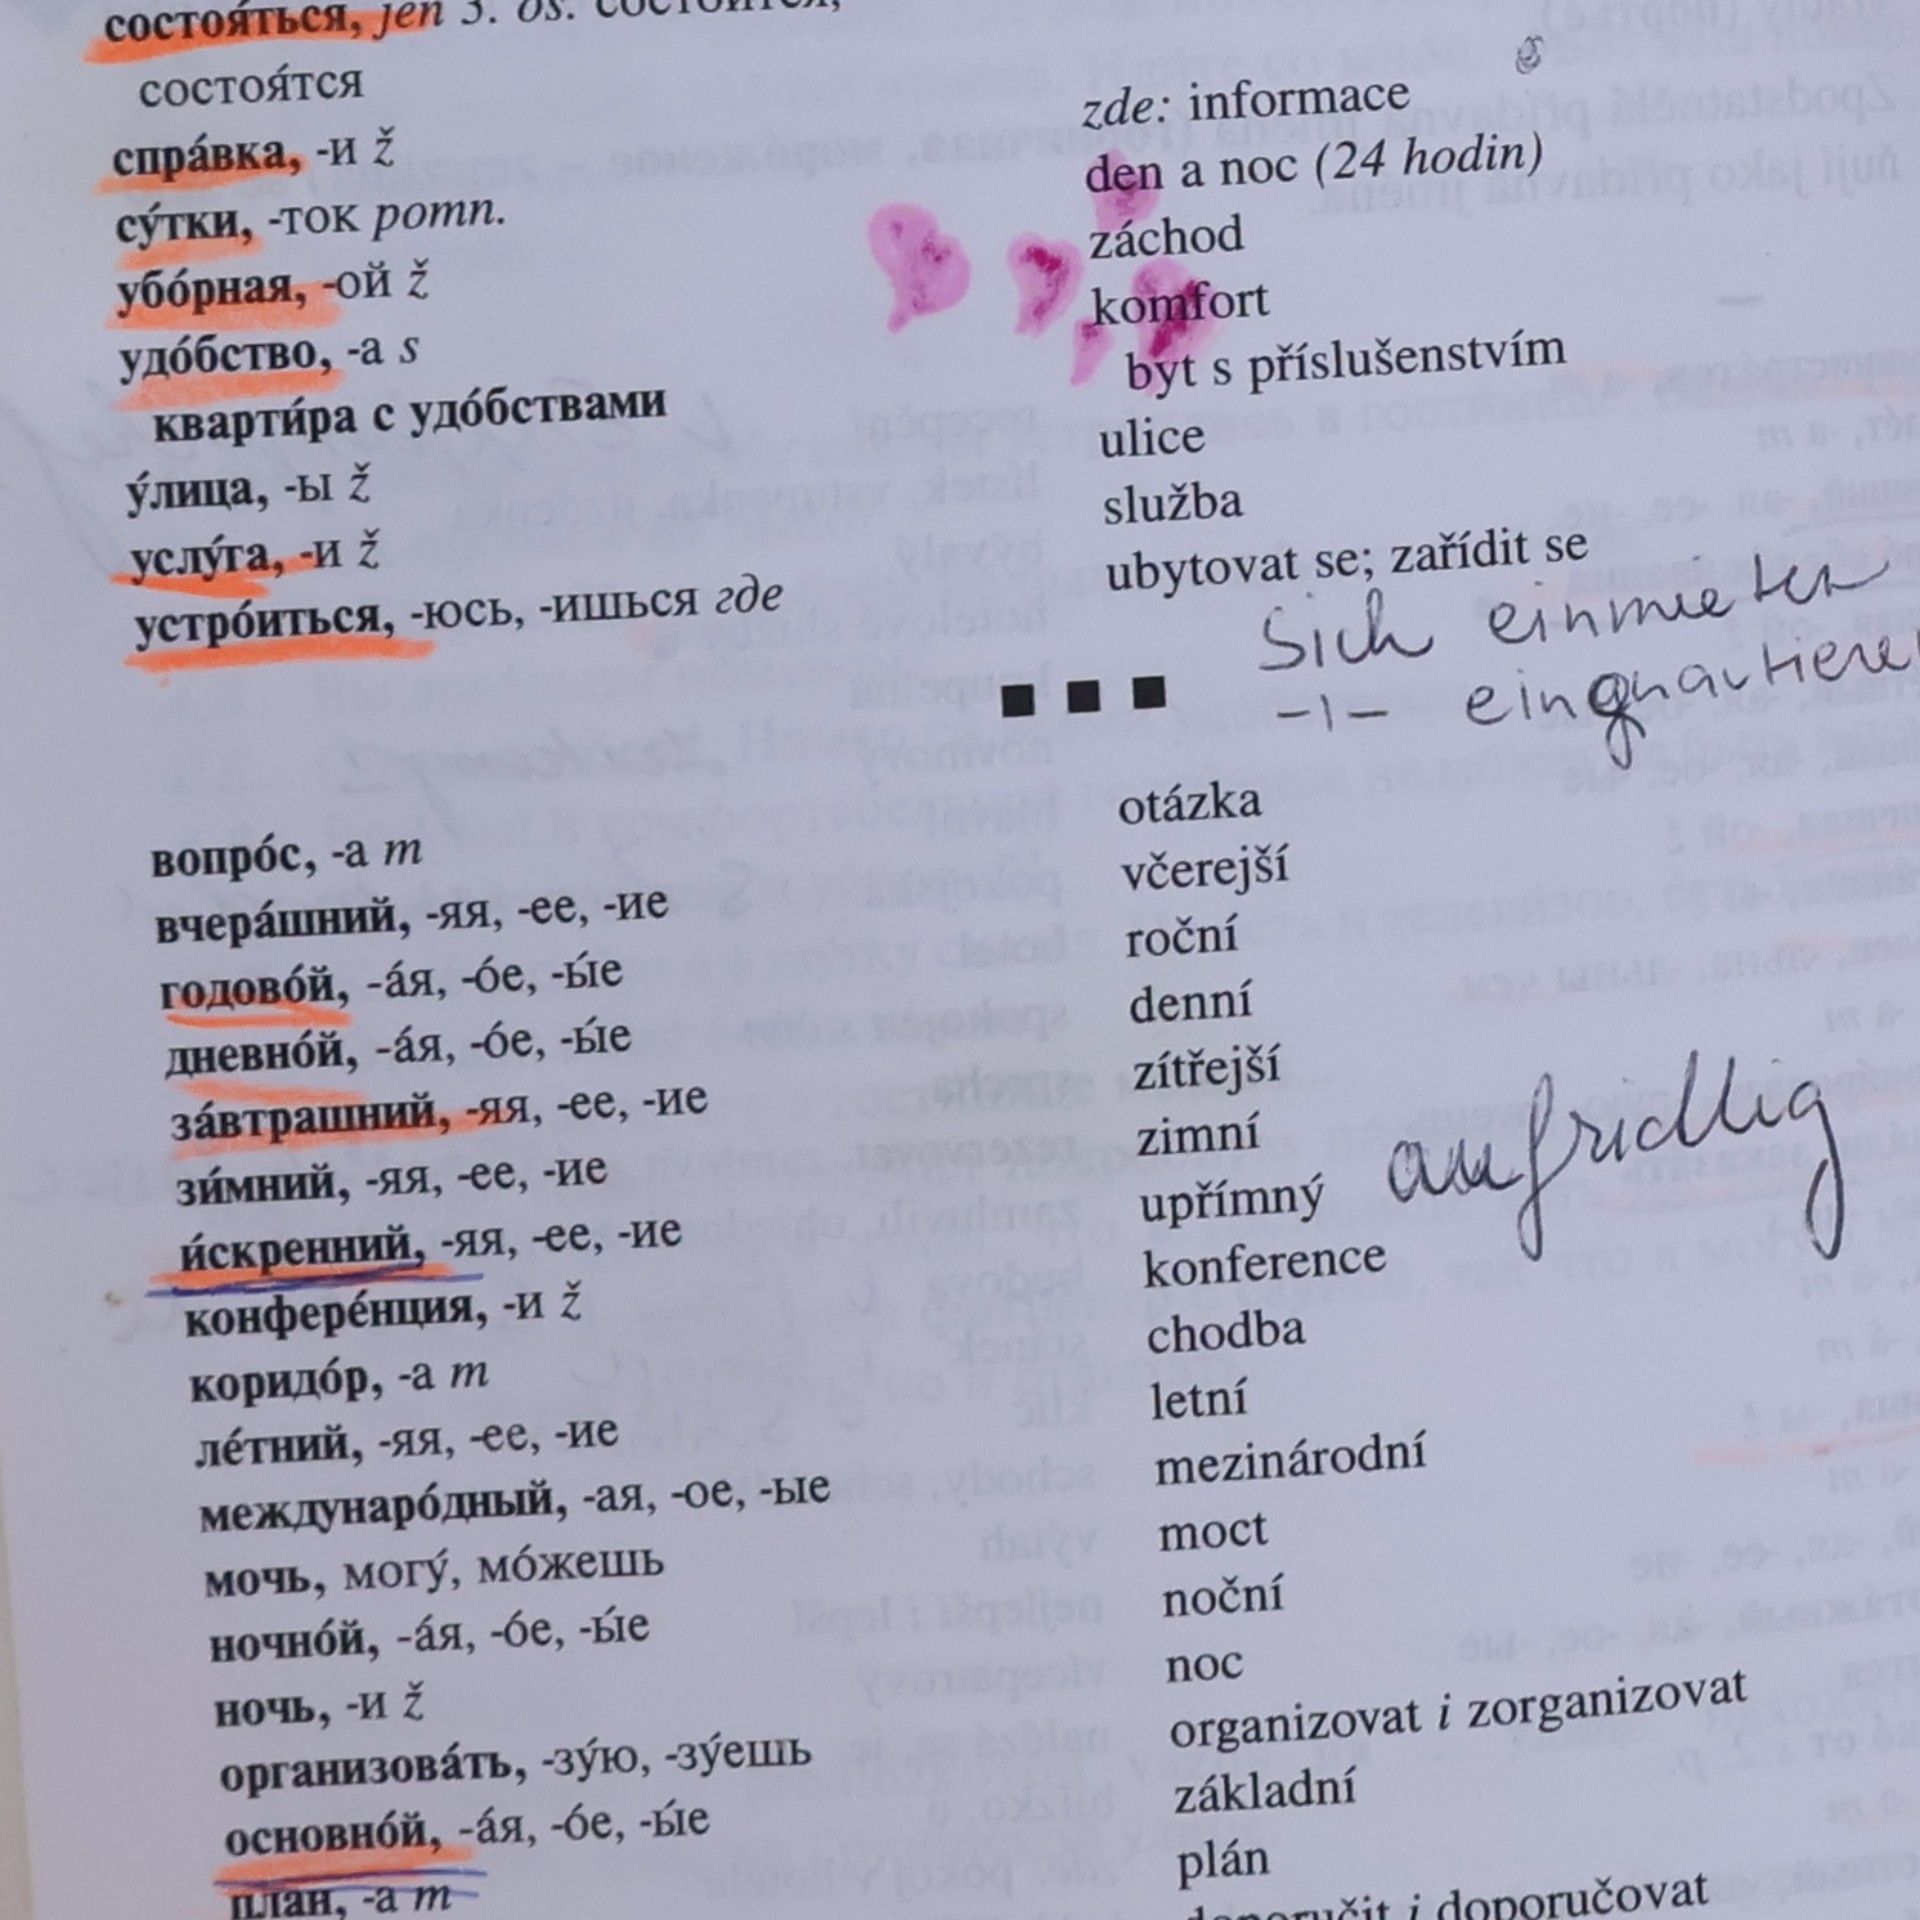 состоя́ться, jen 3. os.
состоя́тся
спра́вка, -и ž
су́тки, -ток pomn.
убо́рная, -ой ž
удо́бство, -а s
кварти́ра с удо́бствами
у́лица, -ы ž
услу́га, -и ž
устро́иться, -юсь, -ишься где
zde: informace
den a noc (24 hodin)
záchod
komfort
byt s příslušenstvím
ulice
služba
ubytovat se; zařídit se
Sich einmieten
-ı- einquartieren
вопро́с, -а m
вчера́шний, -яя, -ее, -ие
годово́й, -а́я, -о́е, -ы́е
дневно́й, -а́я, -о́е, -ы́е
за́втрашний, -яя, -ее, -ие
зи́мний, -яя, -ее, -ие
и́скренний, -яя, -ее, -ие
конфере́нция, -и ž
коридо́р, -а m
ле́тний, -яя, -ее, -ие
междунаро́дный, -ая, -ое, -ые
мочь, могу́, мо́жешь
ночно́й, -а́я, -о́е, -ы́е
ночь, -и ž
организова́ть, -зу́ю, -зу́ешь
основно́й, -а́я, -о́е, -ы́е
план, -а m
otázka
včerejší
roční
denní
zítřejší
zimní
upřímný aufridllig
konference
chodba
letní
mezinárodní
moct
noční
noc
organizovat i zorganizovat
základní
plán
doporučit i doporučovat